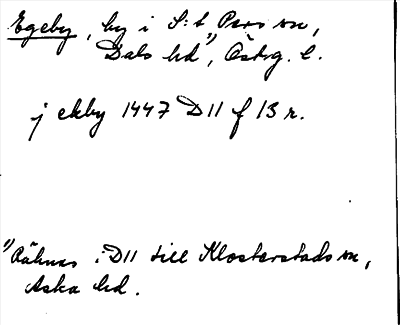 Egeby, by i S:t Pers sn,
Dals hd ¹⁾, Östrg. l.
j ekby 1447 D11 f 13 r.
¹⁾ Räknas i D11 till Klosterstads sn,
Aska hd.